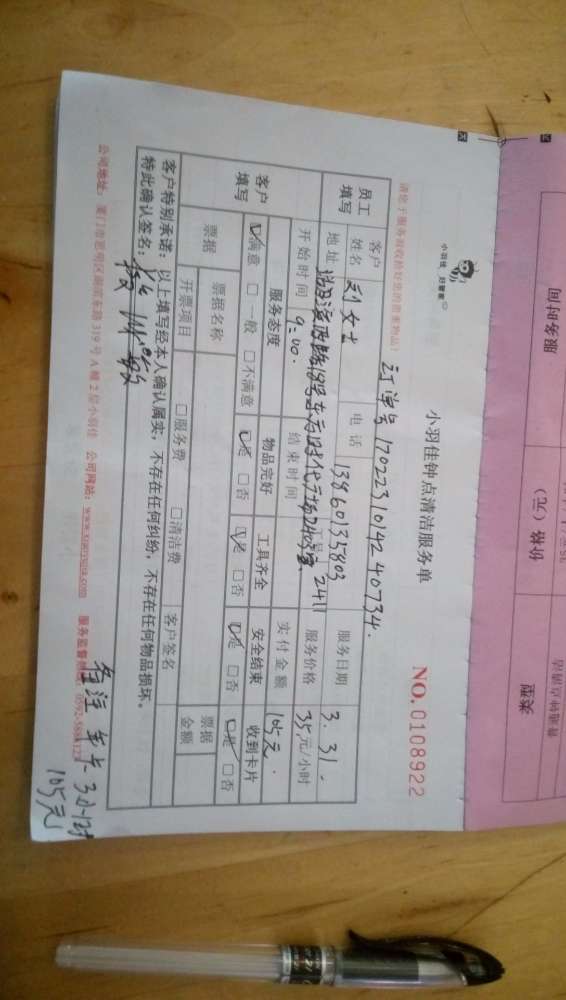 小羽佳 好管家
小羽佳钟点清洁服务单
NO.0108922
请您于服务前收拾好您的贵重物品！
订单号 1702231014240734.
员工填写
客户姓名 刘女士 电话 13860135803 服务日期 3.31.
地址 2411 服务价格 35元/小时
开始时间 9:00. 结束时间 实付金额 105元.
客户填写
服务态度 物品完好 工具齐全 安全结束 收到卡片
☑满意 □一般 □不满意 ☑是 □否 ☑是 □否 ☑是 □否 ☑是 □否
票据 票据名称 票据金额
开票项目 □服务费 □清洁费 客户签名
客户特别承诺：以上填写经本人确认属实，不存在任何纠纷，不存在任何物品损坏。
特此确认签名：
公司地址：厦门市思明区湖滨东路319号A幢2层小羽佳 公司网站：www.xiaoyujia.com 服务监督热线：
备注
105元
服务时间
价格（元）